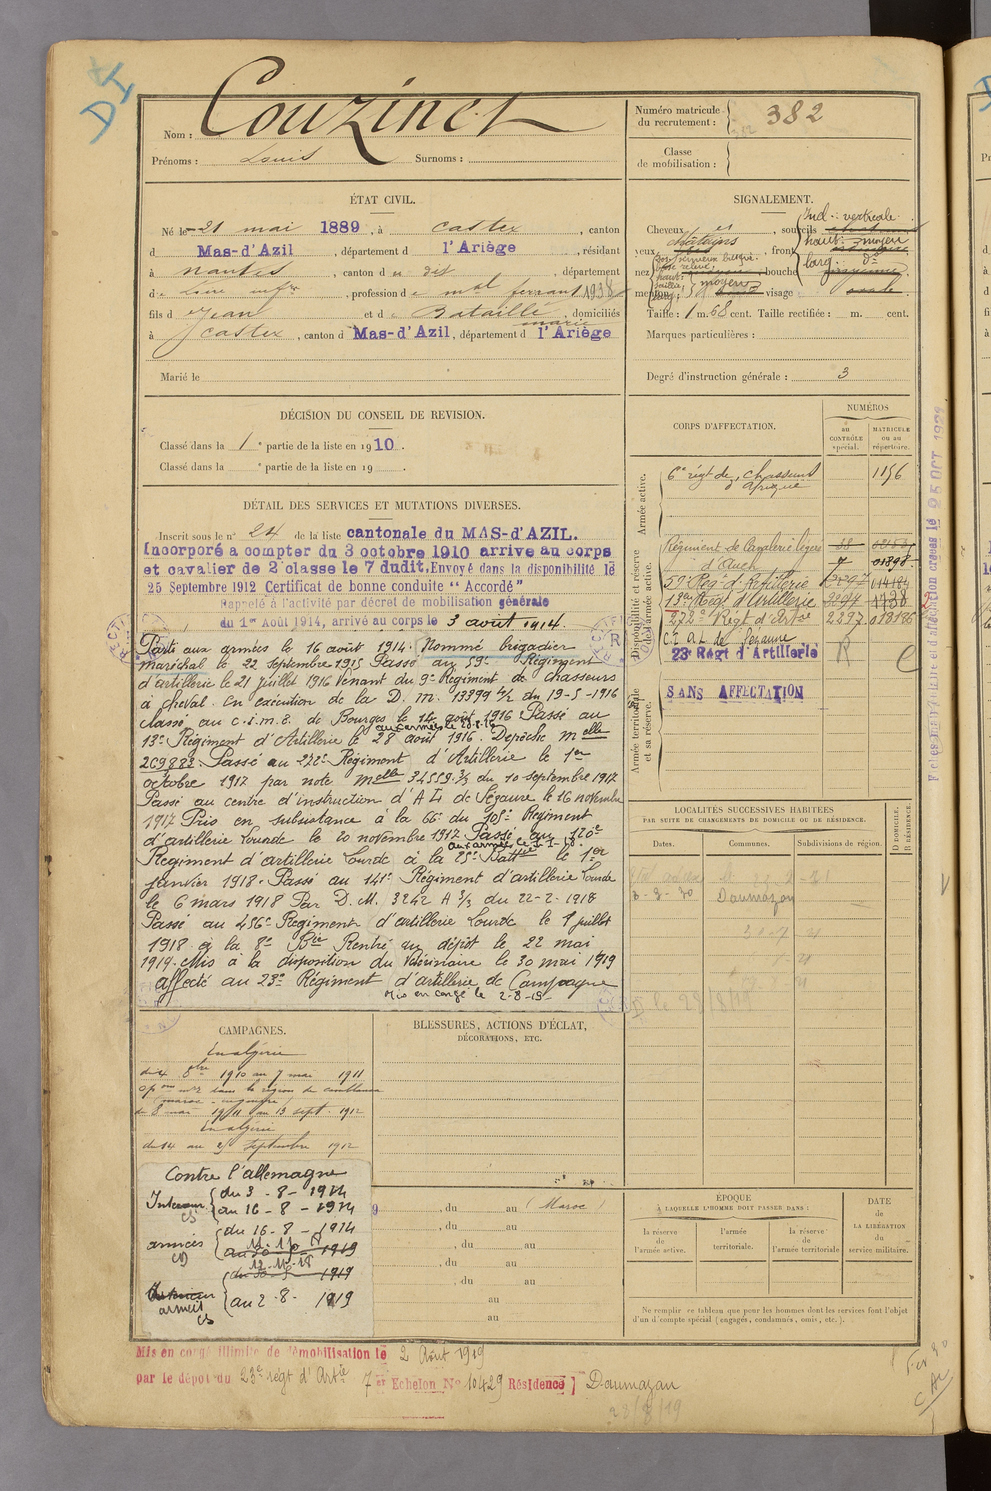 DI
Nom : Couzinet
Prénoms : Louis Surnoms :
Numéro matricule du recrutement : 382
Classe de mobilisation :
ÉTAT CIVIL.
Né le 21 mai 1889, à Castex, canton
d Mas-d'Azil, département d l'Ariège, résidant
à Nantes, canton d e dit, département
d e Loire infre, profession d e mal ferrant 1938
fils d e Jean et d e Bataillé marie domiciliés
à Castex, canton d Mas-d'Azil, département d l'Ariège
Marié le
SIGNALEMENT.
Cheveux châtains, sourcils
Incl. : verticale
yeux, front haut : moyen
larg. : do
nez, bouche
menton, visage
moyens
Taille : 1 m. 68 cent. Taille rectifiée : m. cent.
Marques particulières :
Degré d'instruction générale : 3
DÉCISION DU CONSEIL DE REVISION.
Classé dans la 1e partie de la liste en 1910.
Classé dans la e partie de la liste en 19
DÉTAIL DES SERVICES ET MUTATIONS DIVERSES.
Inscrit sous le n° 24 de la liste cantonale du MAS-d'AZIL.
Incorporé a compter du 3 octobre 1910 arrive au corps
et cavalier de 2e classe le 7 dudit. Envoyé dans la disponibilité le
25 Septembre 1912 Certificat de bonne conduite "Accordé"
Rappelé à l'activité par décret de mobilisation générale
du 1er Août 1914, arrivé au corps le 3 août 1914.
Parti aux armées le 16 août 1914. Nommé brigadier
maréchal le 22 septembre 1915 Passé au 59e Régiment
d'artillerie le 21 juillet 1916 venant du 9e Régiment de chasseurs
à cheval. En exécution de la D. M. 13399 4/2 du 19-5-1916
classé au c.i.m.e. de Bourges le 14 août 1916 Passé au
13e Régiment d'Artillerie le 28 août 1916. Dépêche melle
269882 Passé au 272e Régiment d'Artillerie le 1er
octobre 1917 par note melle 34559-3/3 du 10 septembre 1917
Passé au centre d'instruction d'A L de Sézanne le 16 novembre
1917 Pris en subsistance à la 66e du 105e Régiment
d'artillerie Lourde le 20 novembre 1917 Passé au 120e
Régiment d'artillerie Lourde à la 25e Battie le 1er
janvier 1918. Passé au 141e Régiment d'artillerie Lourde
le 6 mars 1918 Par D. M. 3242 A 3/3 du 22-2-1918
Passé au 456e Régiment d'artillerie Lourde le 8 juillet
1918 à la 8e Bie Rentré au dépôt le 22 mai
1919. Mis à la disposition du Vétérinaire le 30 mai 1919
affecté au 23e Régiment d'artillerie de Campagne
Mis en congé le 2-8-19
CORPS D'AFFECTATION.
NUMÉROS
au CONTRÔLE spécial.
MATRICULE ou au répertoire.
Armée active.
6e régt de chasseurs d'afrique 1156
Disponibilité et réserve de l'armée active.
Régiment de Cavalerie légère
d'Auch
59e Regt d'Artillerie
13e Regt d'Artillerie
272e Régt d'Artie 2397
C.I.A.L. de Sézanne
23e Régt d'Artillerie
R
Armée territoriale et sa réserve.
SANS AFFECTATION
LOCALITÉS SUCCESSIVES HABITÉES
PAR SUITE DE CHANGEMENTS DE DOMICILE OU DE RÉSIDENCE.
Dates.
Communes.
Subdivisions de région.
D DOMICILE.
R RÉSIDENCE.
Daumazan
CAMPAGNES.
En algérie
du 4 8bre 1910 au 7 mai 1911
du 8 mai 1911 au 13 sept. 1912
En algérie
du 14 au 25 septembre 1912
Contre l'allemagne
Intérieur CS
du 3 - 8 - 1914
au 16 - 8 - 1914
armées CD
du 16 - 8 - 1914
au 11-11-18
12-11-18
armées CS
au 2 - 8 - 1919
BLESSURES, ACTIONS D'ÉCLAT,
DÉCORATIONS, ETC.
, du au (Maroc)
, du au
, du au
, du au
, du au
au
au
ÉPOQUE
À LAQUELLE L'HOMME DOIT PASSER DANS :
la réserve de l'armée active.
l'armée territoriale.
la réserve de l'armée territoriale
DATE de LA LIBÉRATION du service militaire.
Ne remplir ce tableau que pour les hommes dont les services font l'objet
d'un compte spécial (engagés, condamnés, omis, etc.).
Mis en congé illimité de démobilisation le 2 Août 1919
par le dépôt du 23e régt d'Artie 7er Echelon No 10429 Résidence Daumazan
28/8/19